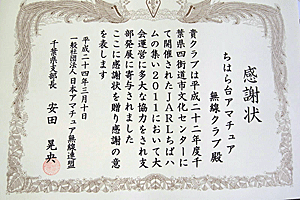 感謝状
ちはら台アマチュア
無線クラブ殿
貴クラブは平成二十二年度千
葉県四街道市文化センターに
て開催されたJARLちばハ
ムの集い2011において大
会運営に多大な協力をされ支
部発展に寄与されました
ここに感謝状を贈り感謝の意
を表します
平成二十四年三月十日
一般社団法人日本アマチュア無線連盟
千葉県支部長
安田 晃央